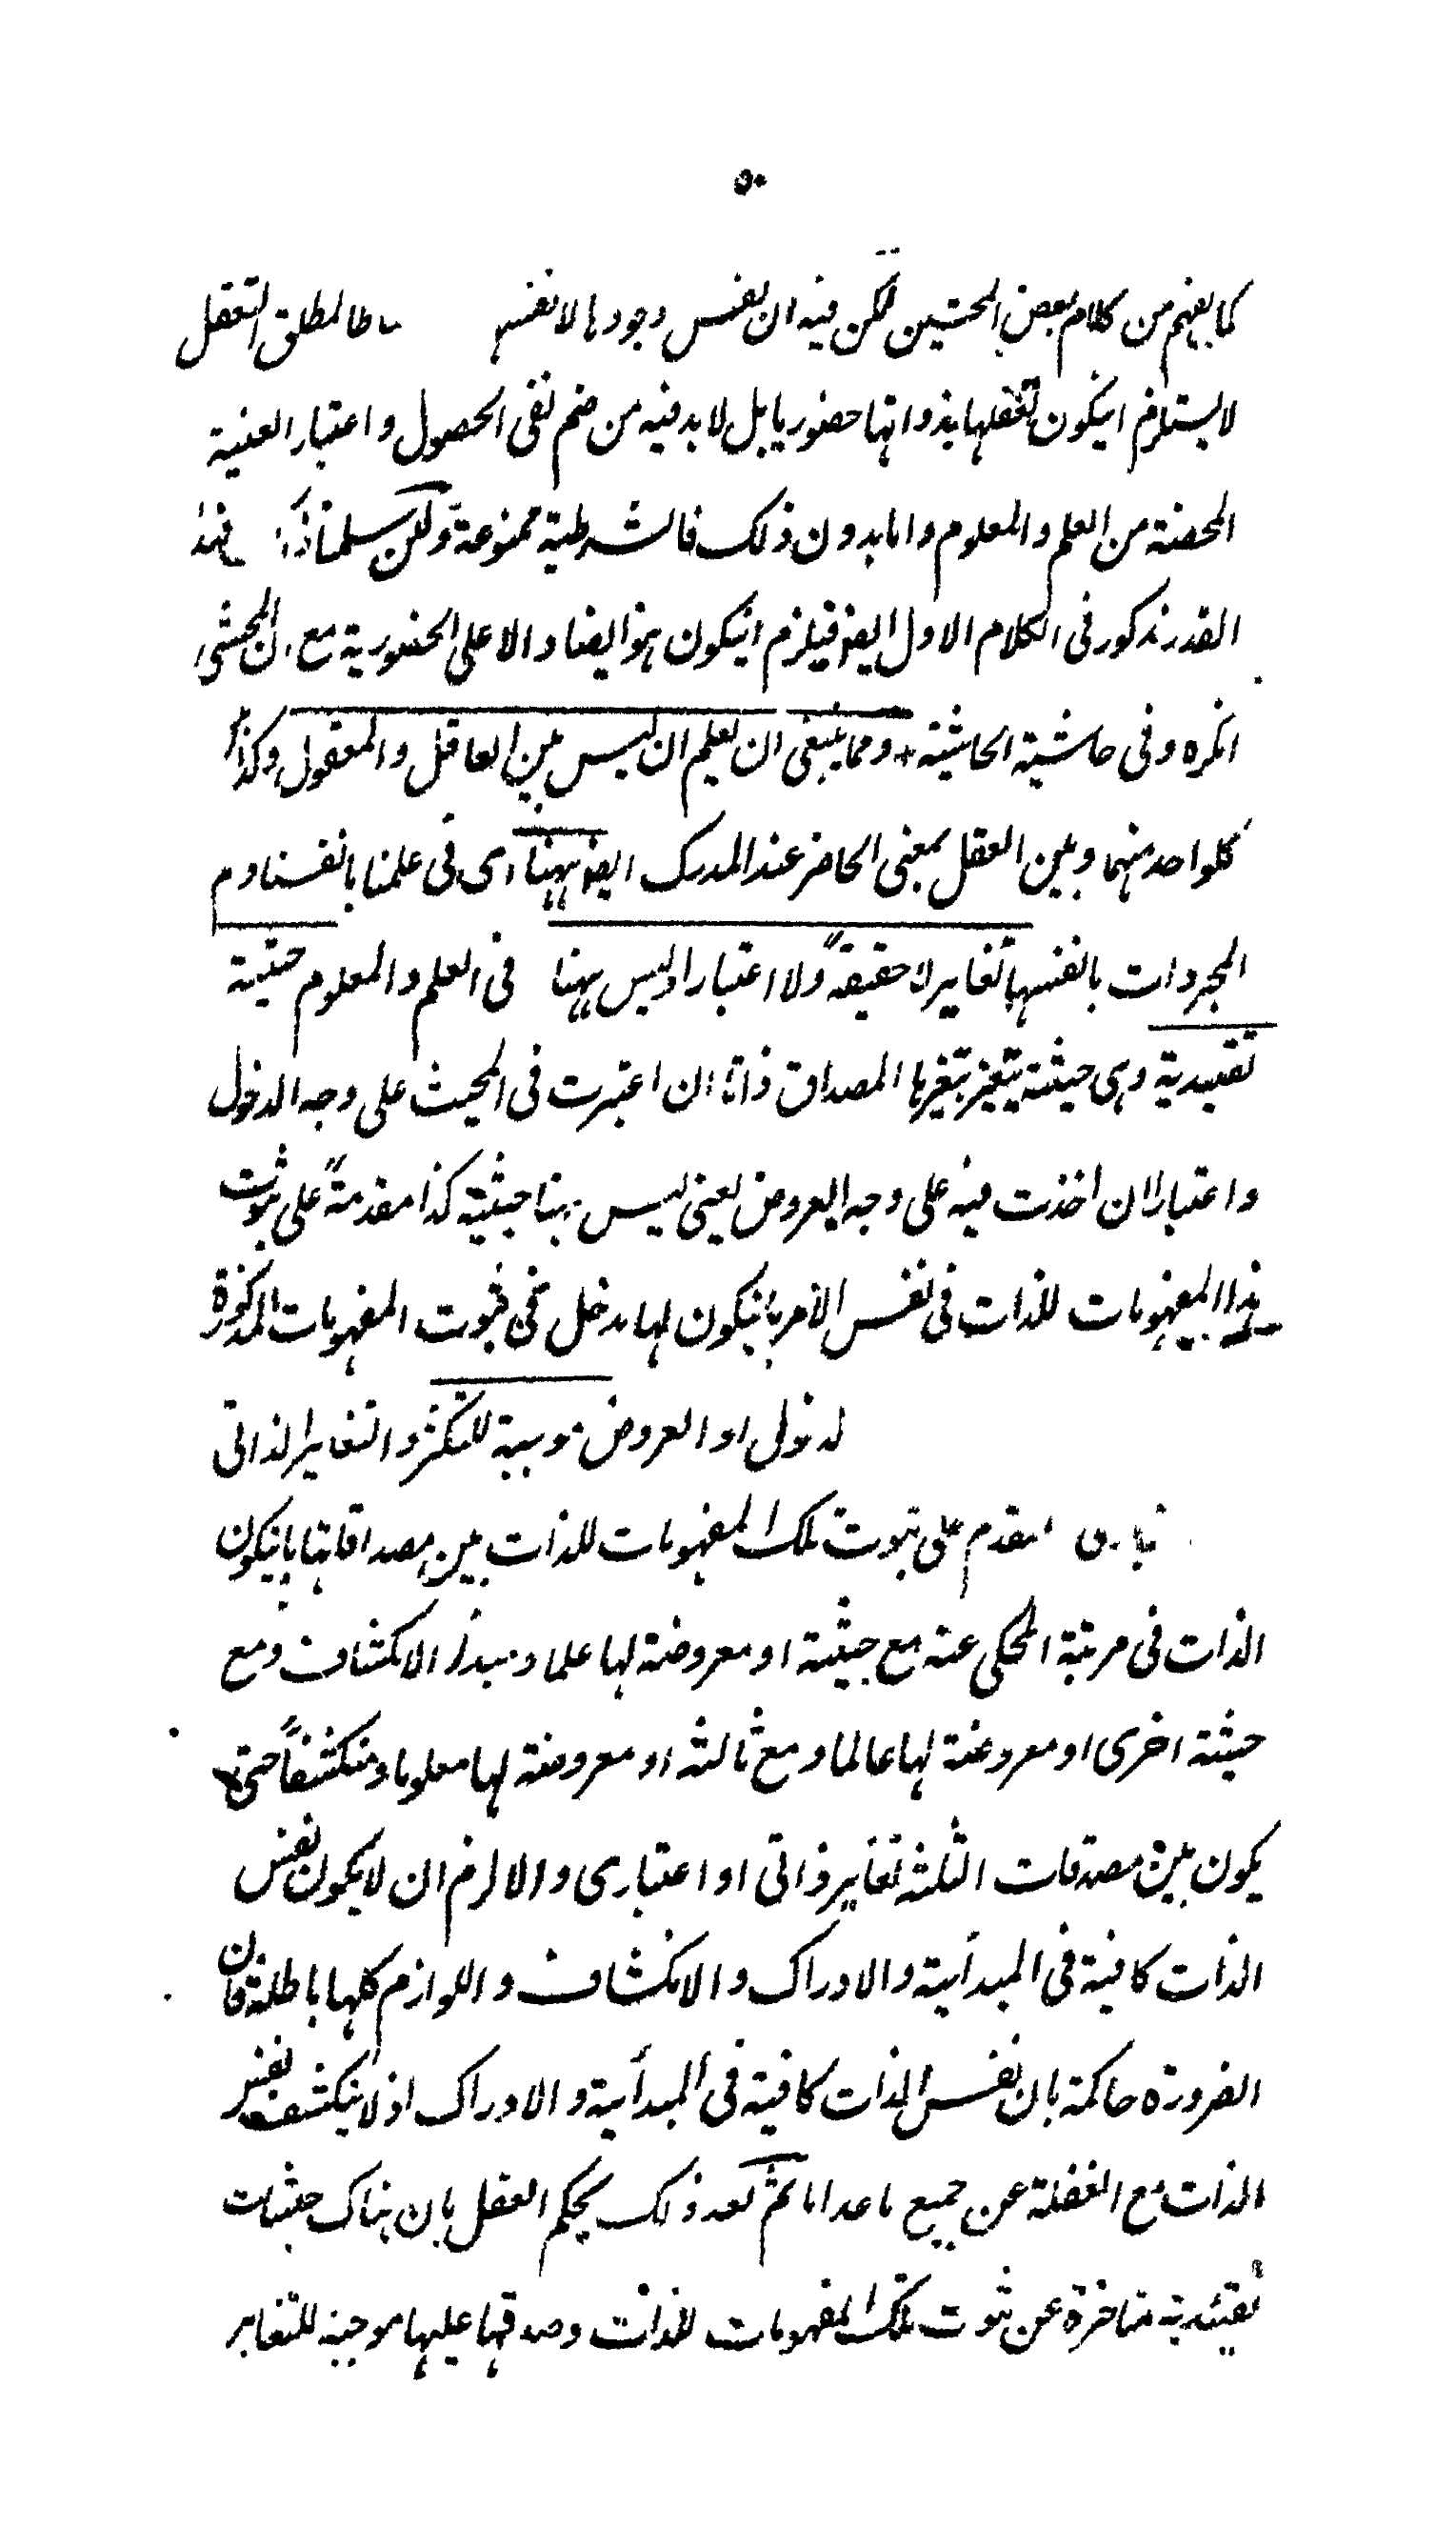 ٥٠
كما يفهم من كلام بعض المحشين لكن فيه ان نفس وجودها لا نفسها لمطلق التعقل
لا يستلزم ان يكون تعقلها بذواتها حضوريا بل لا بد فيه من ضم نفى الحصول و اعتبار العينية
المحضة من العلم و المعلوم و اما بدون ذلك فالشرطية ممنوعة ولئن سلمنا فهذا
القدر مذكور فى الكلام الاول ايضا فيلزم ان يكون هو ايضا دالا على الحضورية مع ان المحشى
انكره و فى حاشية الحاشية + ومما ينبغى ان يعلم ان ليس بين العاقل و المعقول و كذا
كلواحد منهما و بين العقل بمعنى الحاضر عند المدرك ايضا ههنا اى فى علمنا بانفسنا و
المجردات بانفسها تغاير لا حقيقة ولا اعتبارا وليس ههنا فى العلم و المعلوم حيثية
تقييدية وهى حيثية يتغير بتغيرها المصداق ذاتا ان اعتبرت فى المحيث على وجه الدخول
و اعتبارا ان اخذت فيه على وجه العروض يعنى ليس هنا حيثية كذا مقدمة على ثبوت
هذا المفهومات للذات فى نفس الامر بان يكون لها مدخل فى ثبوت المفهومات المذكورة
لدخول او العروض موجبة للتكثر و التغاير الذاتى
المقدم على ثبوت تلك المفهومات للذات بين مصداقاتها بان يكون
الذات فى مرتبة المحكى عنه مع حيثية او معروضة لها علما و مبدأ الانكشاف و مع
حيثية اخرى او معروضة لها عالما و مع ثالثه او معروضة لها معلوما و منكشفاً حتى
يكون بين مصدقات الثلثه تغاير ذاتى او اعتبارى و الا لزم ان لا يكون نفس
الذات كافية فى المبدأية و الادراك و الانكشاف و اللوازم كلها باطلة فان
الضرورة حاكمة بان نفس الذات كافية فى المبدأية و الادراك اذ لا ينكشف بغير
الذات مع الغفلة عن جميع ما عداها ثم بعد ذلك يحكم العقل بان هناك حيثيات
تقييدية متاخرة عن ثبوت تلك المفهومات للذات و صدقها عليها موجبة للتغاير